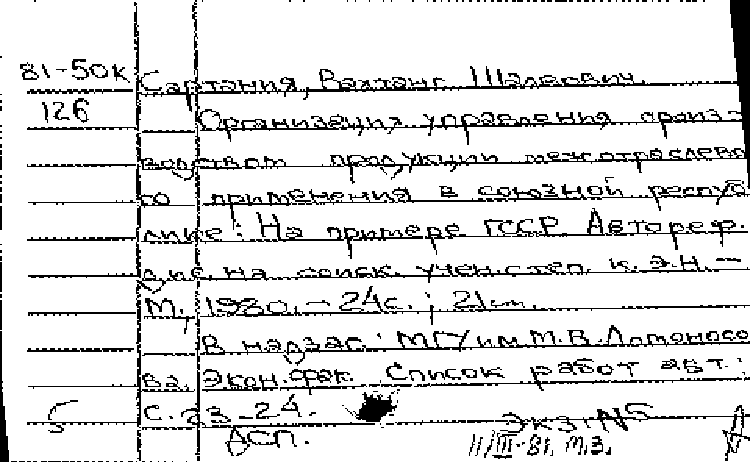 81-50к Сартания, Вахтанг Шалвович.
126 Организация управления произ-
водством продукции межотраслево
го применения в союзной респуб
лике: На примере ГССР Автореф.
дис. на соиск. учен. степ. к. э. н. —
М., 1980. - 24 с.; 21 см.
В надзаг.: МГУ им. М. В. Ломоносо
ва. Экон. фак. Список работ авт.:
5 с. 23-24.
ДСП. Экз. N5
11/III-81. М.З.